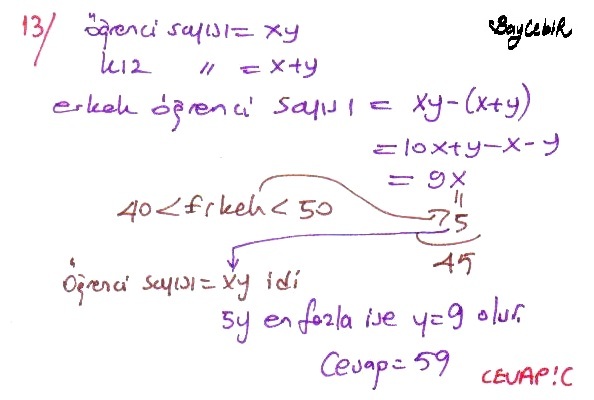 13/ öğrenci sayısı = xy
BayCebiR
kız " = x+y
erkek öğrenci sayısı = xy-(x+y)
= 10x+y-x-y
= 9x
"
40 < Erkek < 50
5
45
Öğrenci sayısı = xy idi
5y en fazla ise y=9 olur.
Cevap = 59
CEVAP:C